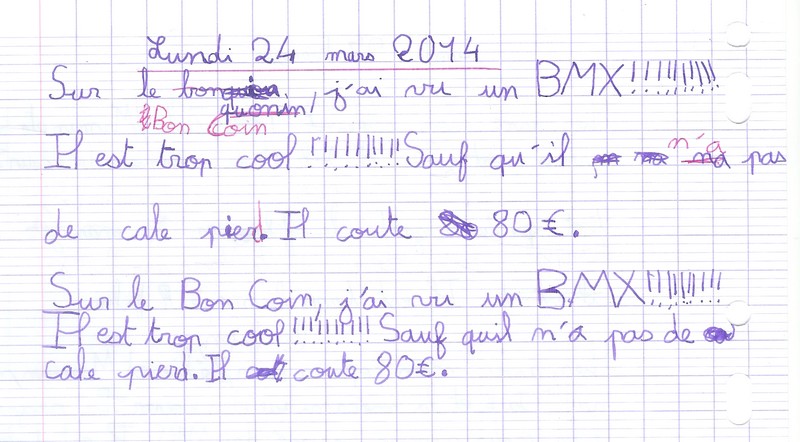 Lundi 24 mars 2014
Sur le bon quonin, j'ai vu un BMX!!!!!!!!!
Bon Coin
Il est trop cool !!!!!!!!!! Sauf qu'il n'a pas
de cale pierd. Il coute 80 €.
Sur le Bon Coin, j'ai vu un BMX!!!!!!!!!
Il est trop cool !!!!!!!!!! Sauf quil n'a pas de
cale pierd. Il coute 80€.